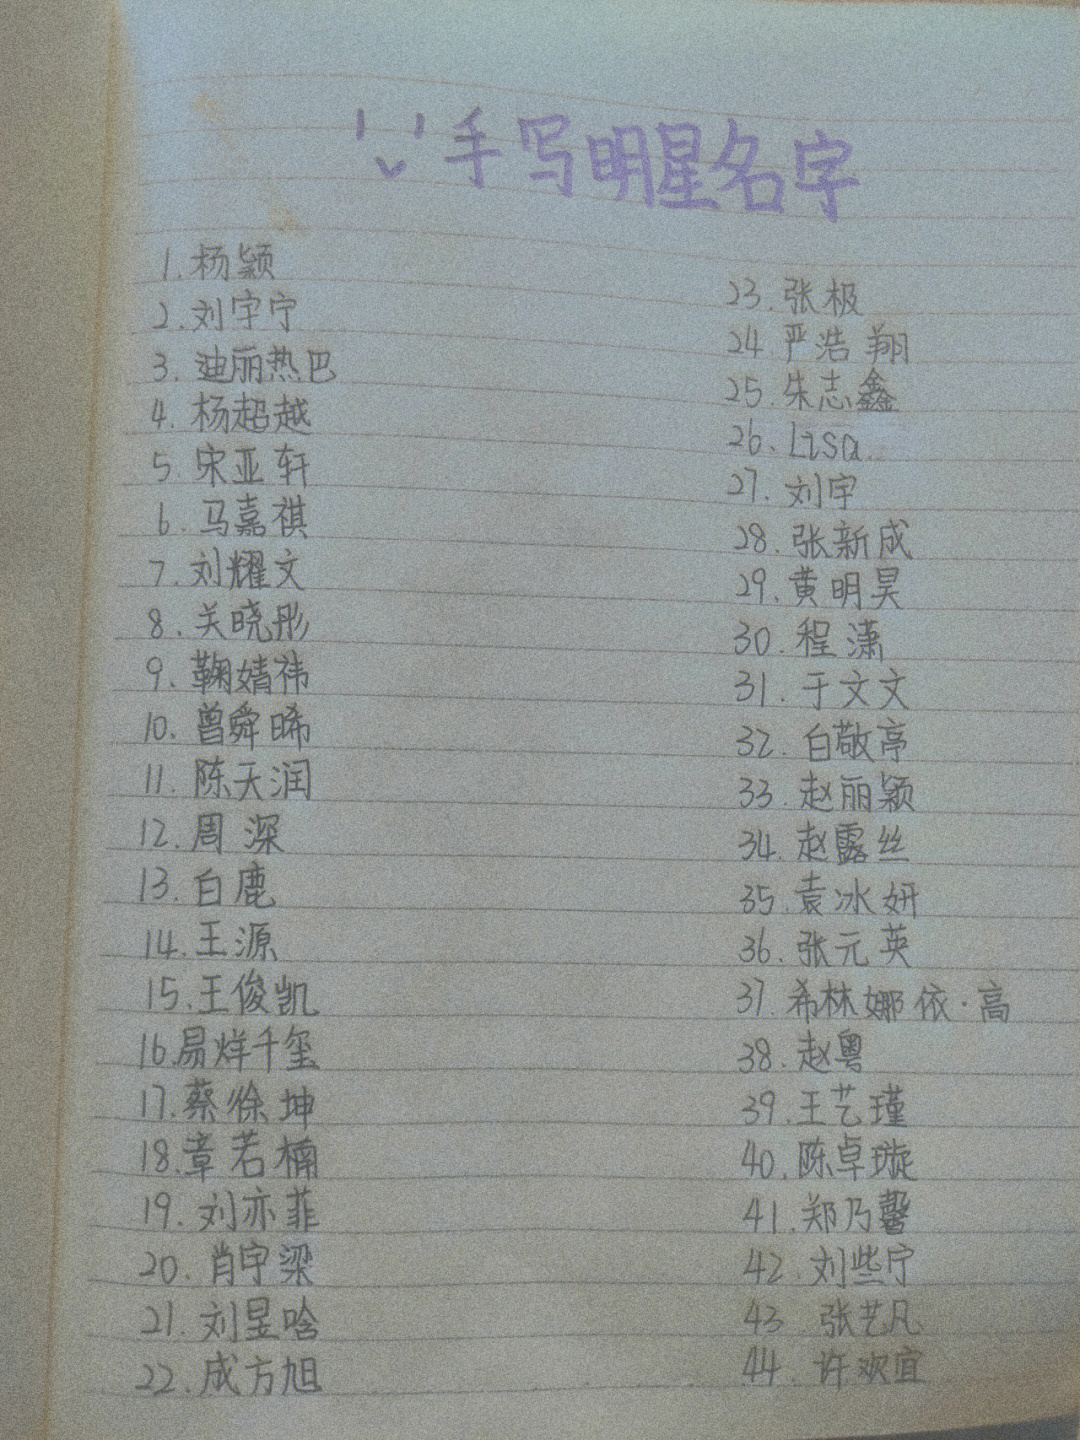 手写明星名字
1.杨颖
2.刘宇宁
3.迪丽热巴
4.杨超越
5.宋亚轩
6.马嘉祺
7.刘耀文
8.关晓彤
9.鞠婧祎
10.曾舜晞
11.陈天润
12.周深
13.白鹿
14.王源
15.王俊凯
16.易烊千玺
17.蔡徐坤
18.章若楠
19.刘亦菲
20.肖宇梁
21.刘昱晗
22.成方旭
23.张极
24.严浩翔
25.朱志鑫
26.Lisa.
27.刘宇
28.张新成
29.黄明昊
30.程潇
31.于文文
32.白敬亭
33.赵丽颖
34.赵露丝
35.袁冰妍
36.张元英
37.希林娜依·高
38.赵粤
39.王艺瑾
40.陈卓璇
41.郑乃馨
42.刘些宁
43 张艺凡
44.许欢宜